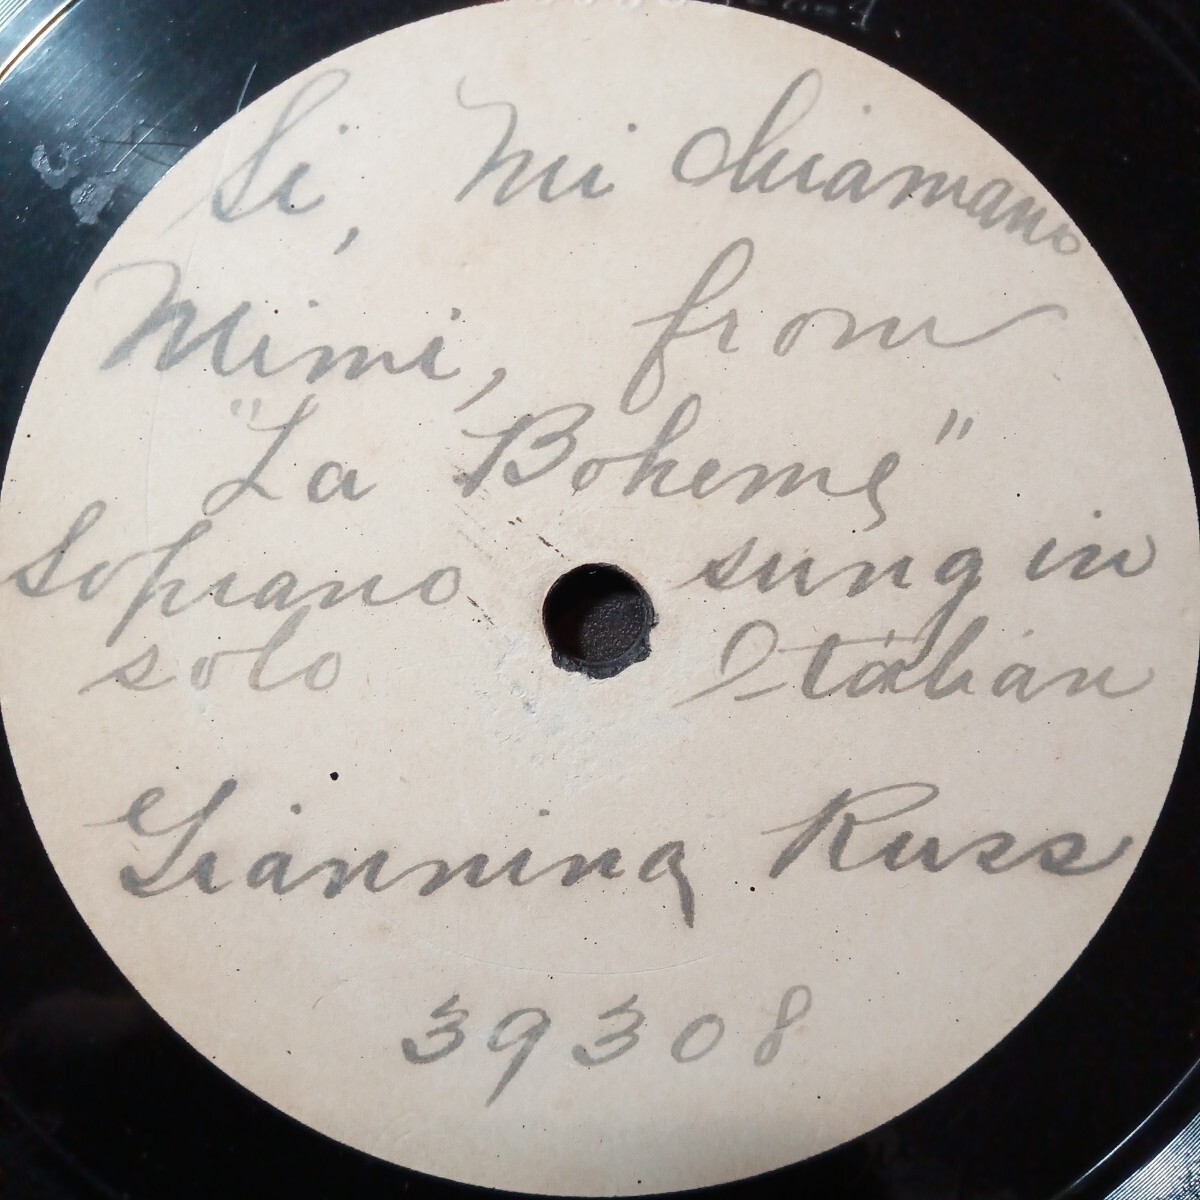 Si, Mi Chiamano
Mimi, from
"La Boheme"
Soprano sung in
solo Italian
Giannina Russ
39308